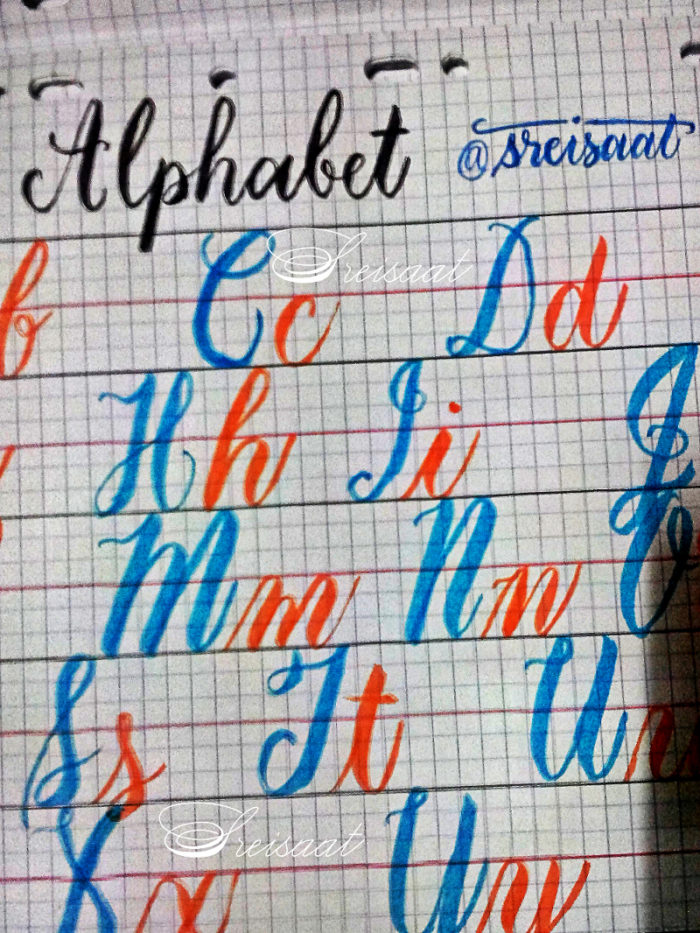 Alphabet @sreisaat
b Cc Dd
Sreisaat
Hh Ii J
Mm Nn O
Ss Tt Uu
Xx Yy
Sreisaat